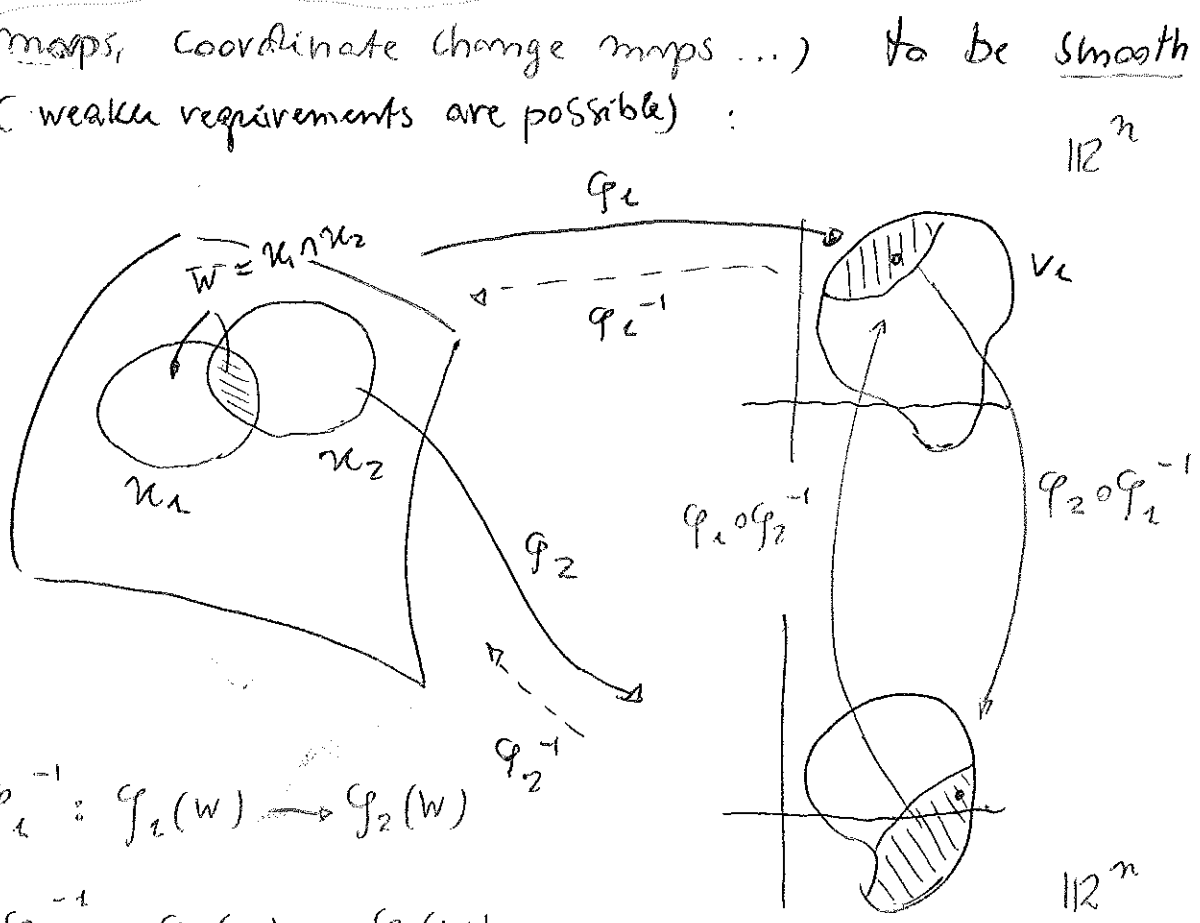 maps, coordinate change maps ...) to be smooth
( weaker requirements are possible) :
ℝⁿ
φ₁
W = U₁ ∩ U₂
V₁
φ₁⁻¹
U₂
U₁
φ₁ ∘ φ₂⁻¹
φ₂ ∘ φ₁⁻¹
φ₂
φ₂⁻¹
φ₁⁻¹ : φ₁(W) → φ₂(W)
ℝⁿ